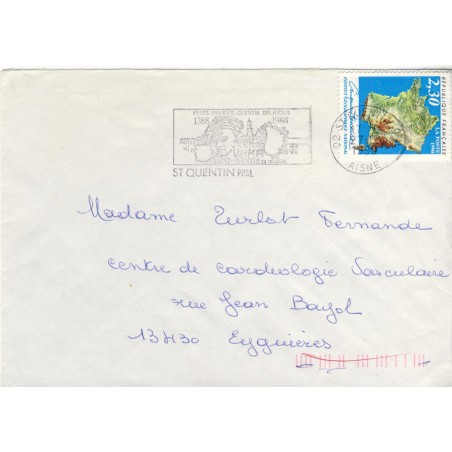 FETES MAURICE QUENTIN DELATOUR
1788 1988
ST QUENTIN PPAL
02
AISNE
2,30
REPUBLIQUE FRANÇAISE
LA POSTE
1988
Madame Turlot Fernande
centre de cardiologie Vasculaire
rue Jean Bayol
13430 Eyguières